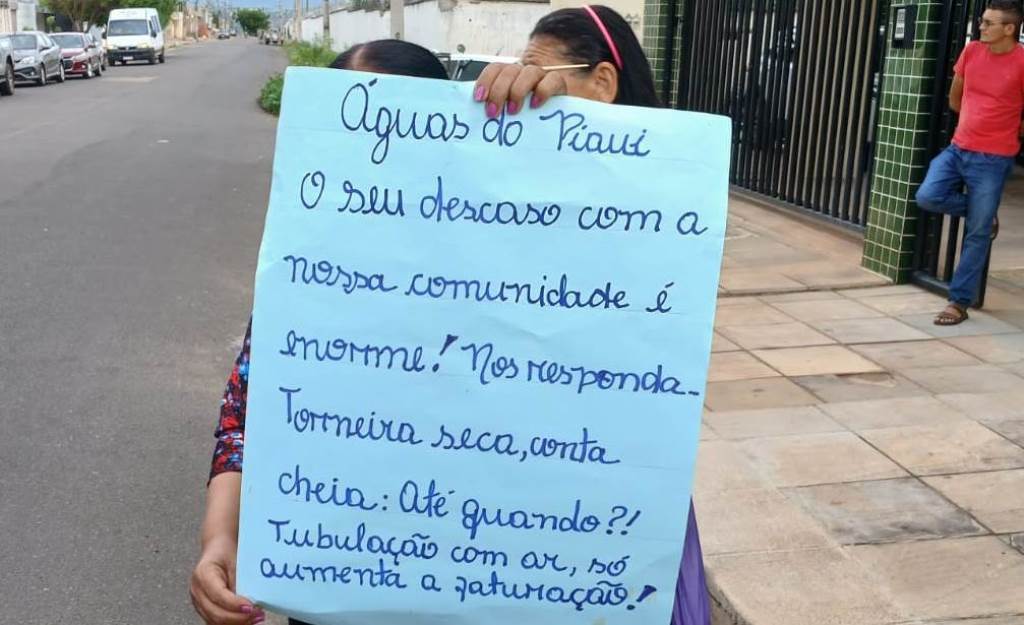 Águas do Piaui
O seu descaso com a
nossa comunidade é
enorme! Nos responda-
Torneira seca, conta
cheia: Até quando?!
Tubulação com ar, só
aumenta a faturação!